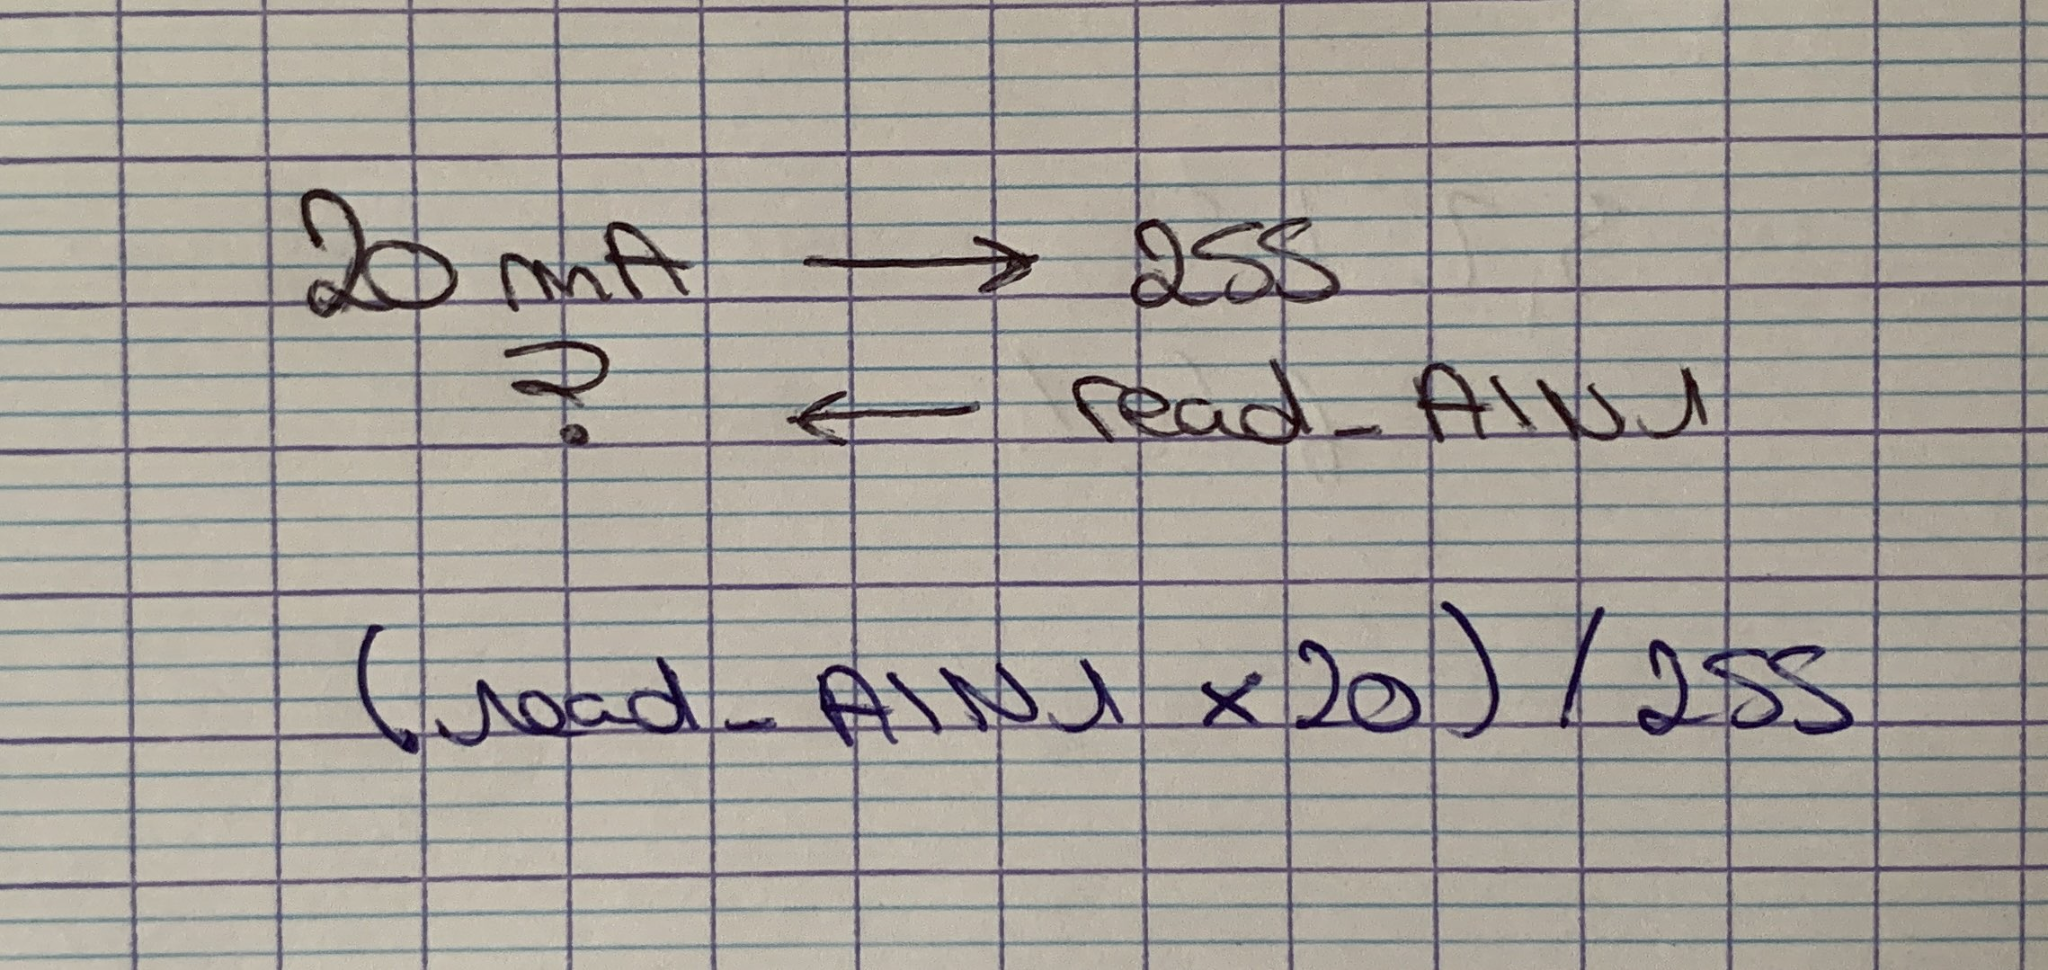 20 mA → 255
? ← read_AIN1
(read_AIN1 x 20) / 255